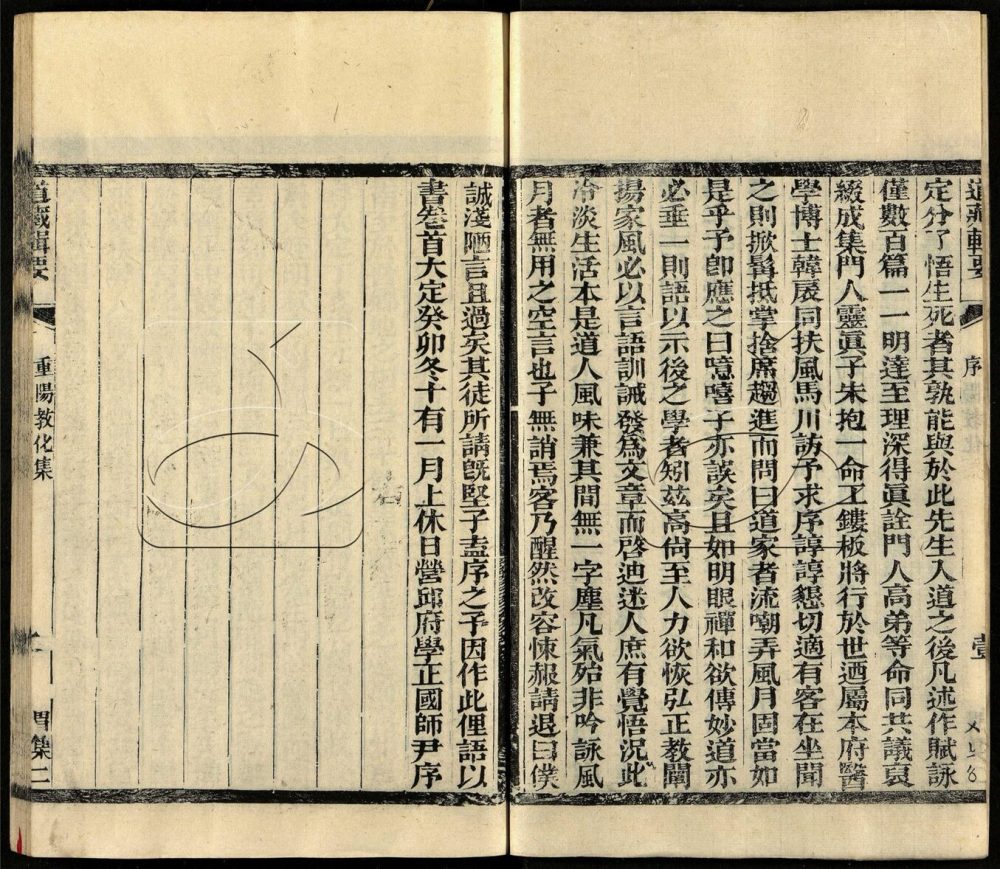 道藏輯要
序
壹
定分了悟生死者其孰能與於此先生入道之後凡述作賦詠
僅數百篇一一明達至理深得眞詮門人高弟等命同共議裒
綴成集門人靈眞子朱抱一命工鏤板將行於世迺屬本府醫
學博士韓扆同扶風馬川訪予求序諄諄懇切適有客在坐聞
之則掀髯抵掌捨席趨進而問曰道家者流嘲弄風月固當如
是乎予卽應之曰噫嘻子亦誤矣且如明眼禪和欲傳妙道亦
必垂一則語以示後之學者矧茲高尙至人力欲恢弘正教闡
揚家風必以言語訓誡發爲文章而啓迪迷人庶有覺悟況此
冷淡生活本是道人風味兼其間無一字塵凡氣殆非吟詠風
月者無用之空言也子無誚焉客乃醒然改容悚赧請退曰僕
誠淺陋言且過矣其徒所請旣堅子盍序之予因作此俚語以
書卷首大定癸卯冬十有一月上休日營邱府學正國師尹序
道藏輯要
重陽教化集
胃集二